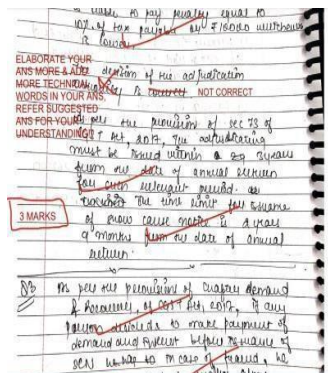 is liable to pay penalty equal to
10% of tax payable or ₹10000 whichever
is lower.
ELABORATE YOUR
ANS MORE & ADD
MORE TECHNICAL
WORDS IN YOUR ANS,
REFER SUGGESTED
ANS FOR YOUR
UNDERSTANDING!!
decision of the adjudication
is correct NOT CORRECT
As per the provision of sec 73 of
Act, 2017, The adjudicating
must be issued within 3 years
from the date of annual return
for such relevant period.
The time limit for issuance
3 MARKS
of show cause notice is 2 years
9 months from the date of annual
return.
Q3 As per the provisions of Chapter demand
& Recoveries, of CGST Act, 2017, if any
person decides to make payment of
demand and before issuance of
SCN in case of fraud, he